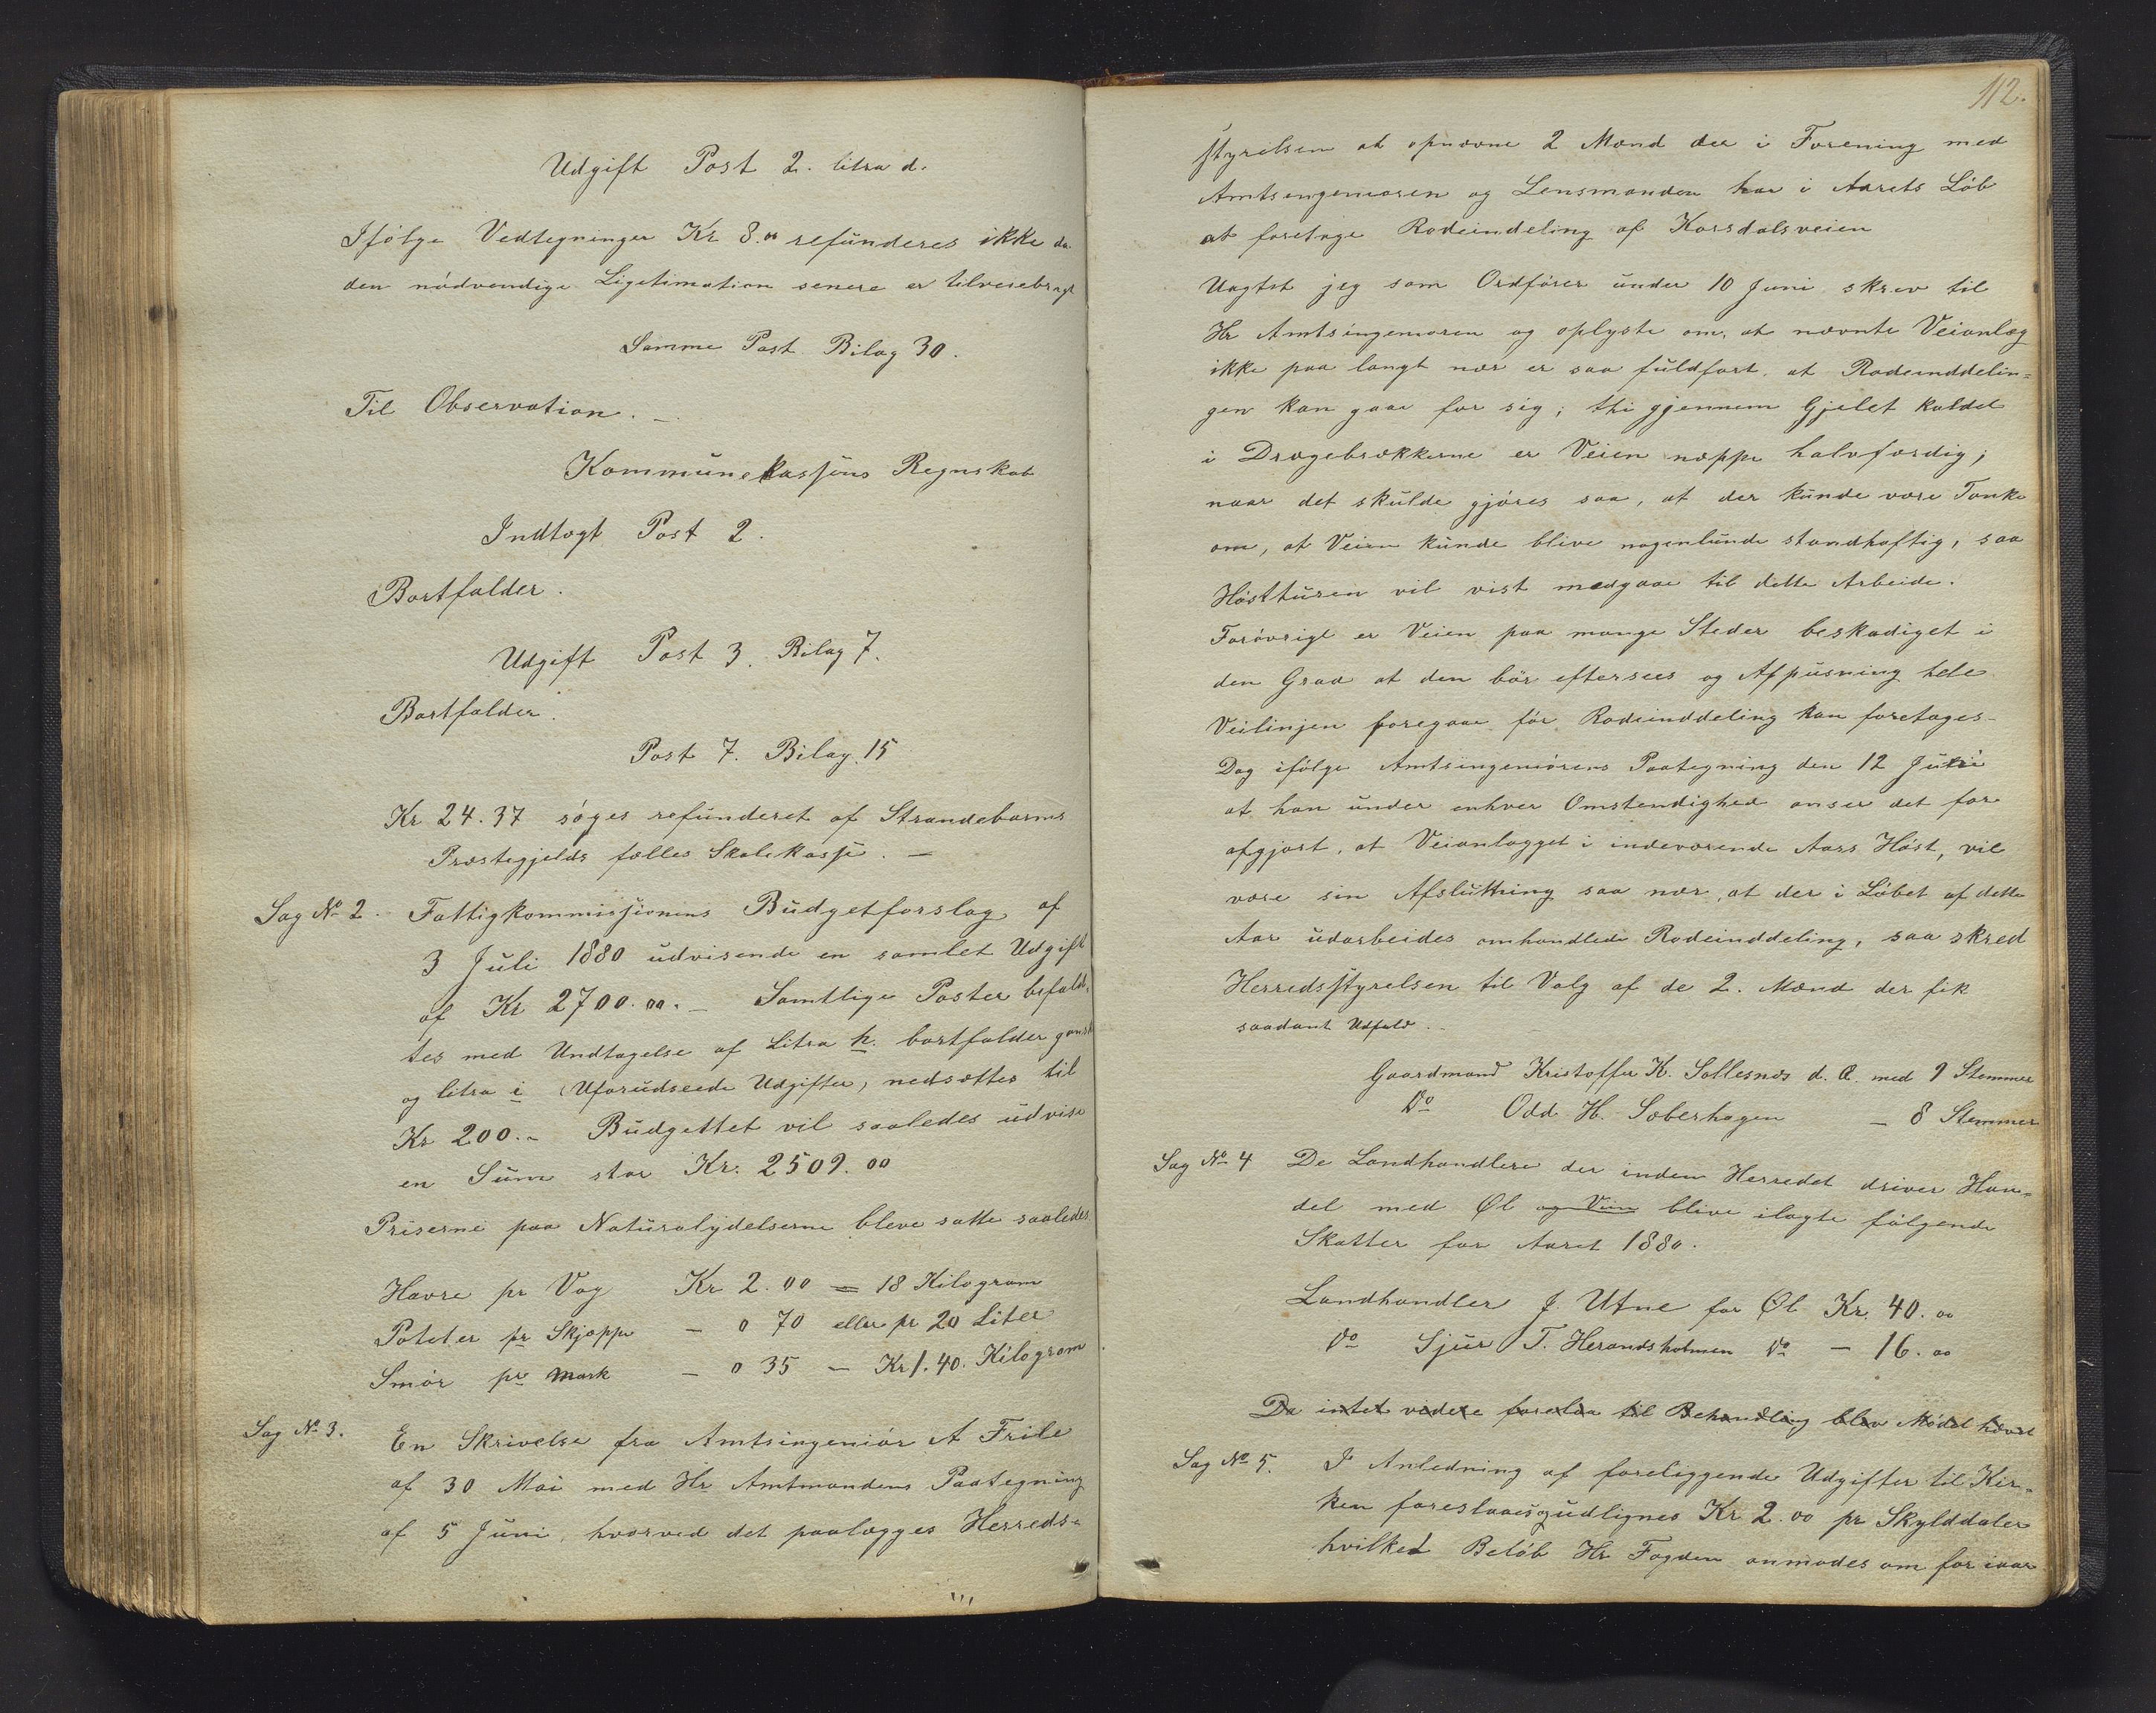 Udgift Post 2. litra d.
Ifölge Vedtegninger Kr 8.00 refunderes ikke da
den nödvendige Ligitimation senere er tilveiebragt
Samme Post Bilag 30.
Til Observation. –
Kommunekassens Regnskab
Indtægt Post 2.
Bortfalder.
Udgift Post 3. Bilag 7.
Bortfalder.
Post 7. Bilag 15
Kr 24.37 söges refunderet af Strandebarms
Præstegjelds fælles Skolekasse. –
Sag No 2. Fattigkommissionens Budgetforslag af
3 Juli 1880 udvisende en samlet Udgift
af Kr 2700.00. – Samtlige Poster befald-
tes med Undtagelse af Litra h. bortfalder ganske
og litra i (Uforudseede Udgifter) nedsættes til
Kr 200.- Budgettet vil saaledes udvise
en Sum stor Kr. 2509.00
Priserne paa Naturalydelserne bleve satte saaledes
Havre pr Vog Kr 2.00 = 18 Kilogram
Poteter pr Skjæppe – 0 70 eller pr 20 Liter
Smör pr Mark – 0 35 – Kr 1.40. Kilogram
Sag No 3. En Skrivelse fra Amtsingeniör A Friile
af 30 Mai med Hr Amtmandens Paategning
af 5 Juni, hvorved det paalægges Herreds-
112.
styrelsen at opnævne 2 Mænd der i Forening med
Amtsengeniøren og Lensmanden har i Aarets Löb
at foretage Rodeindeling af Korsdalsveien
Uagtet jeg som Ordförer under 10 Juni skrev til
Hr Amtsingeniøren og oplyste om, at nævnte Veianlæg
ikke paa langt nær er saa fuldfört, at Rodeinddelin=
gen kan gaae for sig; thi gjennem Gjelet kaldet
i Dragebrækkerne er Veien neppe halvfærdig;
naar det skulde gjöres saa, at der kunde være Tanke
om, at Veien kunde blive nogenlunde standhaftig, saa
Hösttüren vil vist medgaae til dette Arbeide.
Forövrigt er Veien paa mange Steder beskadiget i
den Grad at den bör eftersees og Afpusning hele
Veilinjen foregaae för Rodeinddeling kan foretages-
Dog ifölge Amtsingeniörens Paategning den 12 Juni
at han under enhver Omstendighed anser det for
afgjort, at Veianlægget i indeværende Aars Höst, vil
være sin Afslutning saa nær, at der i Löbet af dette
Aar udarbeides omhandlede Rodeinddeling, saa skred
Herredsstyrelsen til Valg af de 2. Mænd der fik
saadant Udfald. –
Gaardmand Kristoffer K. Sollesnes d. æ. med 9 Stemmer
Do Odd H. Soberhagen – 8 Stemmer
Sag No 4 De Landhandlere der inden Herredet driver Han=
del med Øl og Vin blive ilagte fölgende
Skatter for Aaret 1880.
Landhandler J. Utne for Øl Kr. 40.00
Do Sjur T. Herandsholmen Do – 16.00
Da intet videre forelaa til Behandling blev Mödet hævet
Sag No 5. I Anledning af foreliggende Udgifter til Kir-
ken foreslaaes udlignes Kr 2.00 pr Skylddaler
hvilket Belöb Hr Fogden anmodes om for iaar